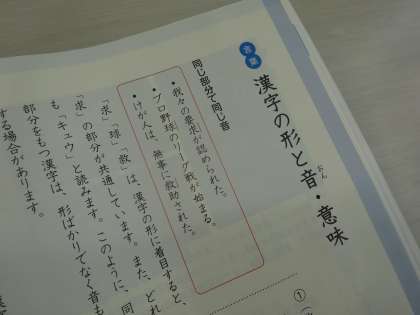 言葉
漢字の形と音・意味
おん
同じ部分で同じ音
・我々の要求が認められた。
・プロ野球のリーグ戦が始まる。
・けが人は、無事に救助された。
「求」「球」「救」は、漢字の形に着目すると、
「求」の部分が共通しています。また、どれ
も「キュウ」と読みます。このように、同
部分をもつ漢字は、形ばかりでなく音も
する場合があります。
①